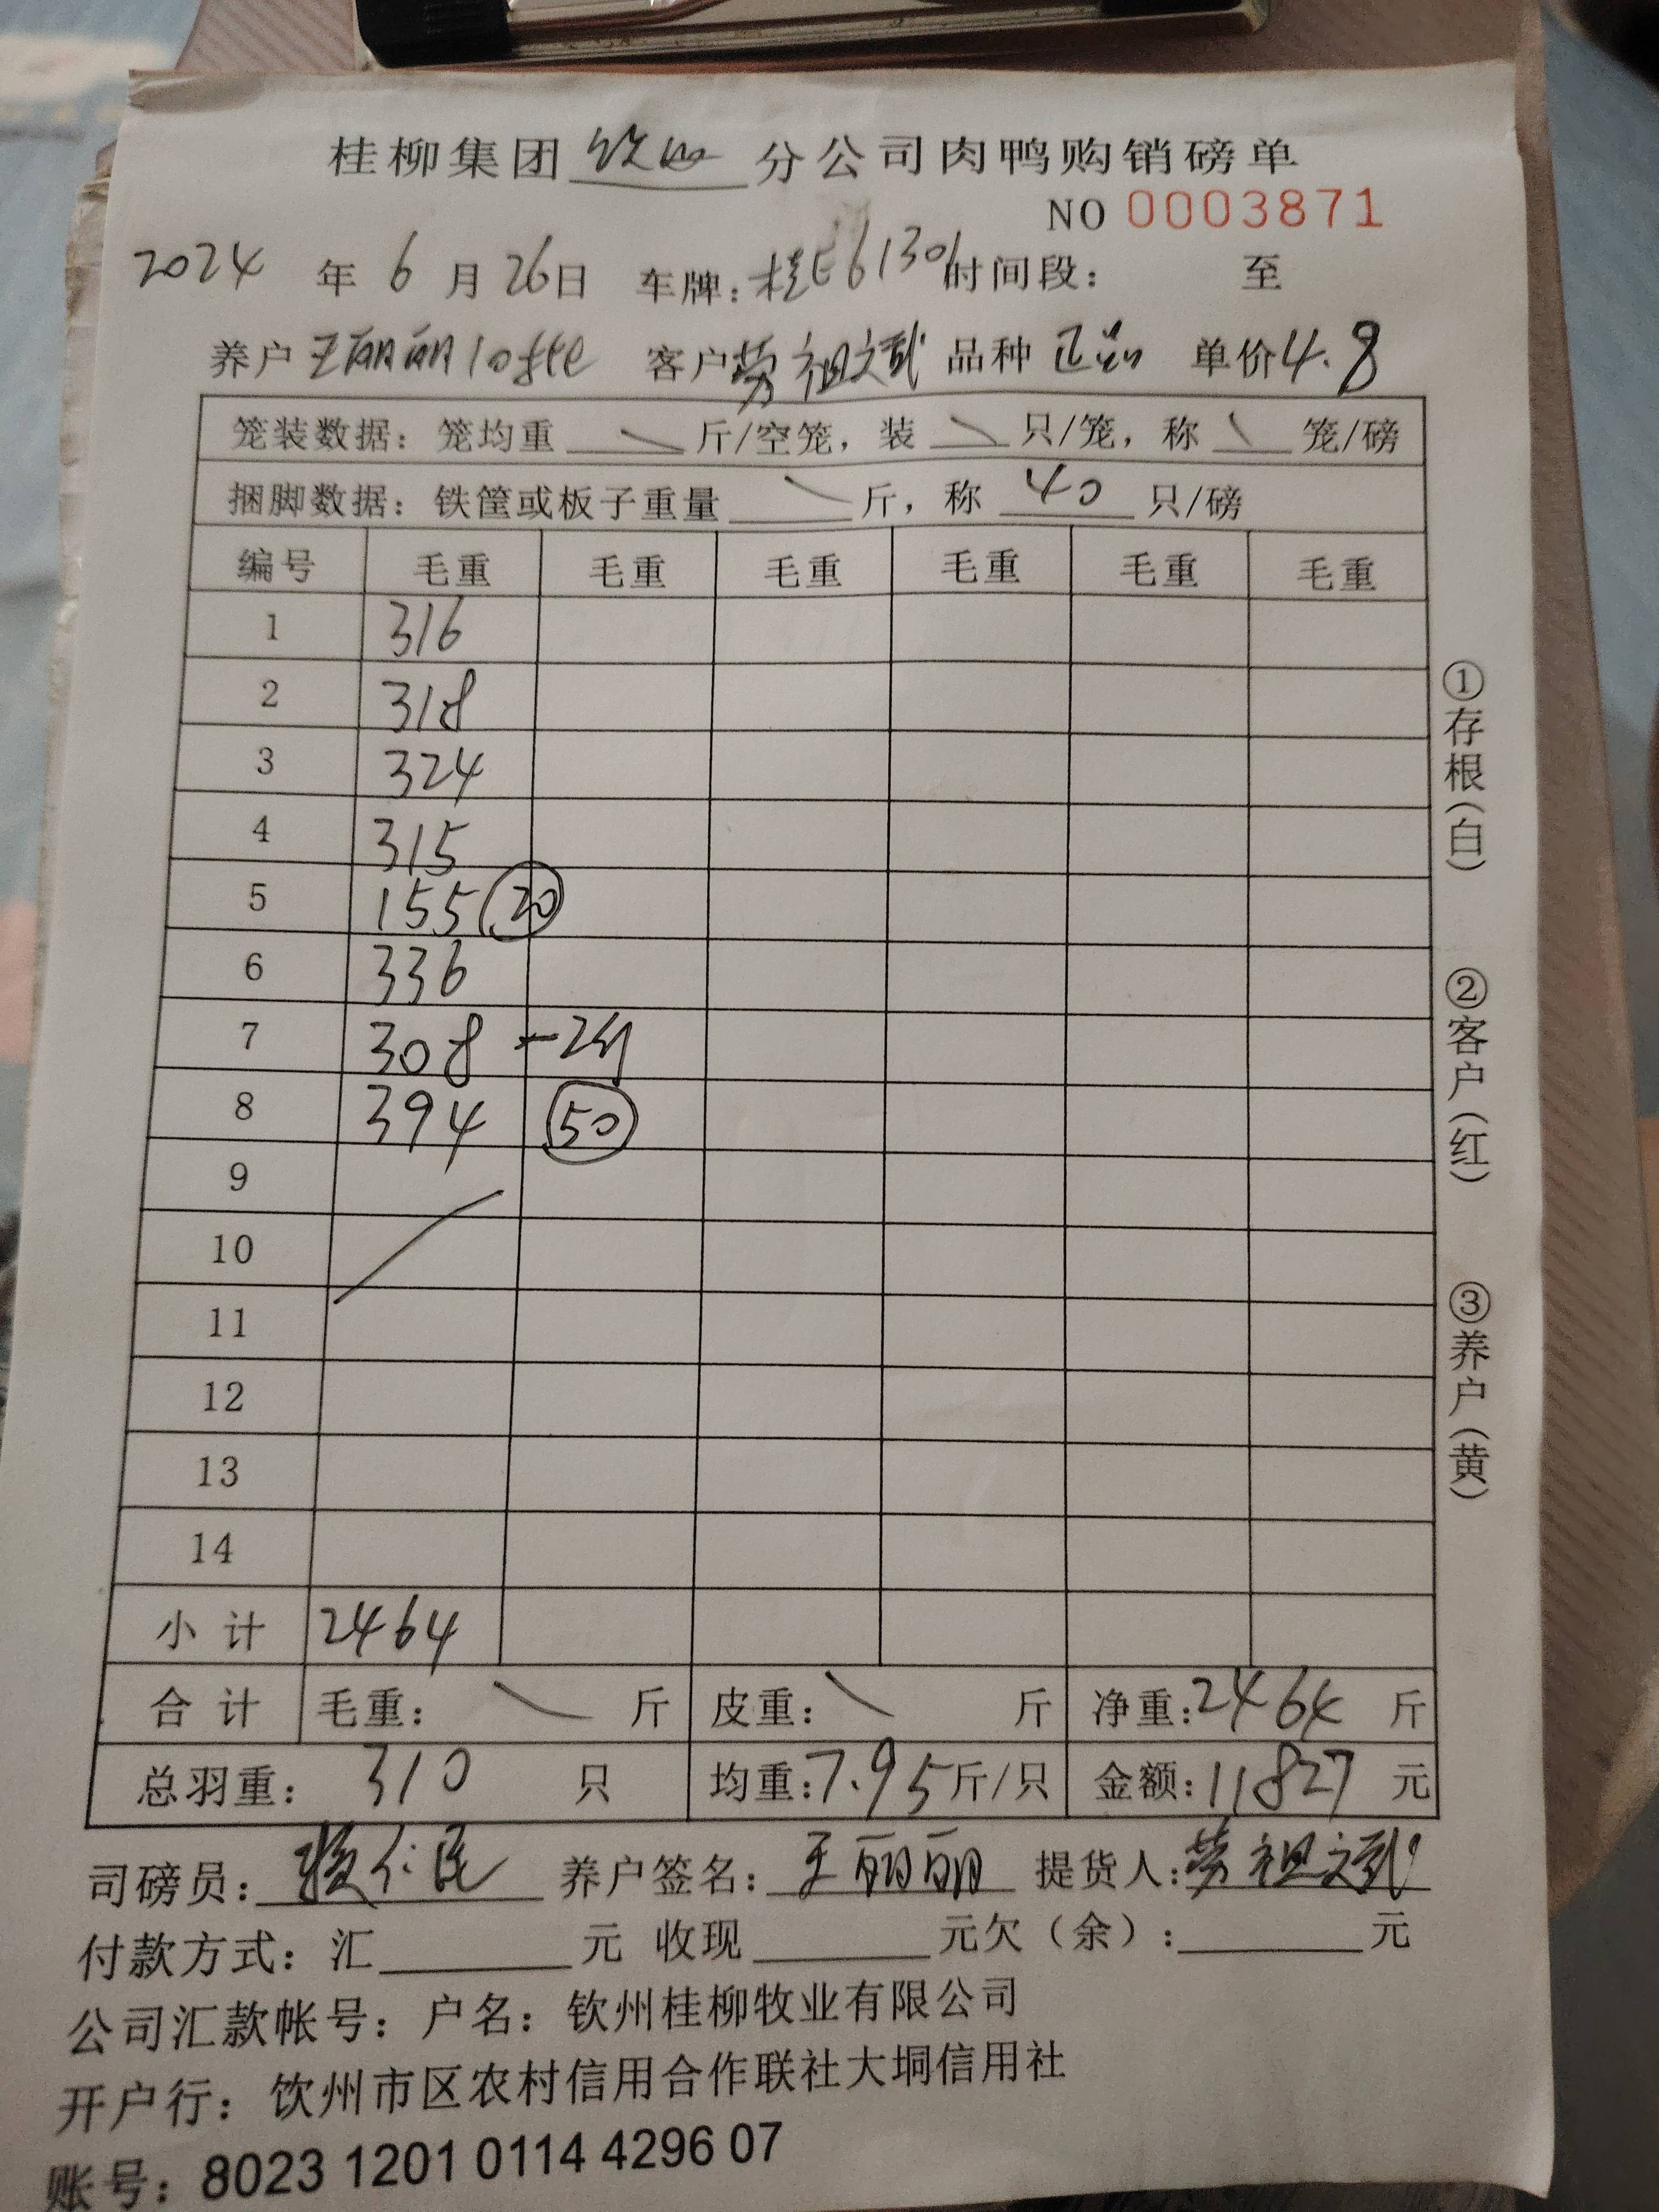 桂柳集团钦州分公司肉鸭购销磅单
NO 0003871
2024 年 6 月 26日 车牌:桂E61301时间段: 至
养户 王丽丽10 客户劳祖斌 品种 单价4.8
笼装数据: 笼均重 斤/空笼, 装 只/笼, 称 笼/磅
捆脚数据: 铁筐或板子重量 斤, 称 40 只/磅
编号 毛重 毛重 毛重 毛重 毛重 毛重
1 316
2 318
3 324
4 315
5 155 20
6 336
7 308 -2只
8 394 50
9
10
11
12
13
14
小计 2464
合计 毛重: 斤 皮重: 斤 净重:2464 斤
总羽重: 310 只 均重:7.95斤/只 金额:11827 元
司磅员: 仁民 养户签名: 王丽丽 提货人:劳祖斌
付款方式: 汇 元 收现 元欠(余): 元
公司汇款帐号: 户名: 钦州桂柳牧业有限公司
开户行: 钦州市区农村信用合作联社大垌信用社
账号: 8023 1201 0114 4296 07
①存根(白)
②客户(红)
③养户(黄)